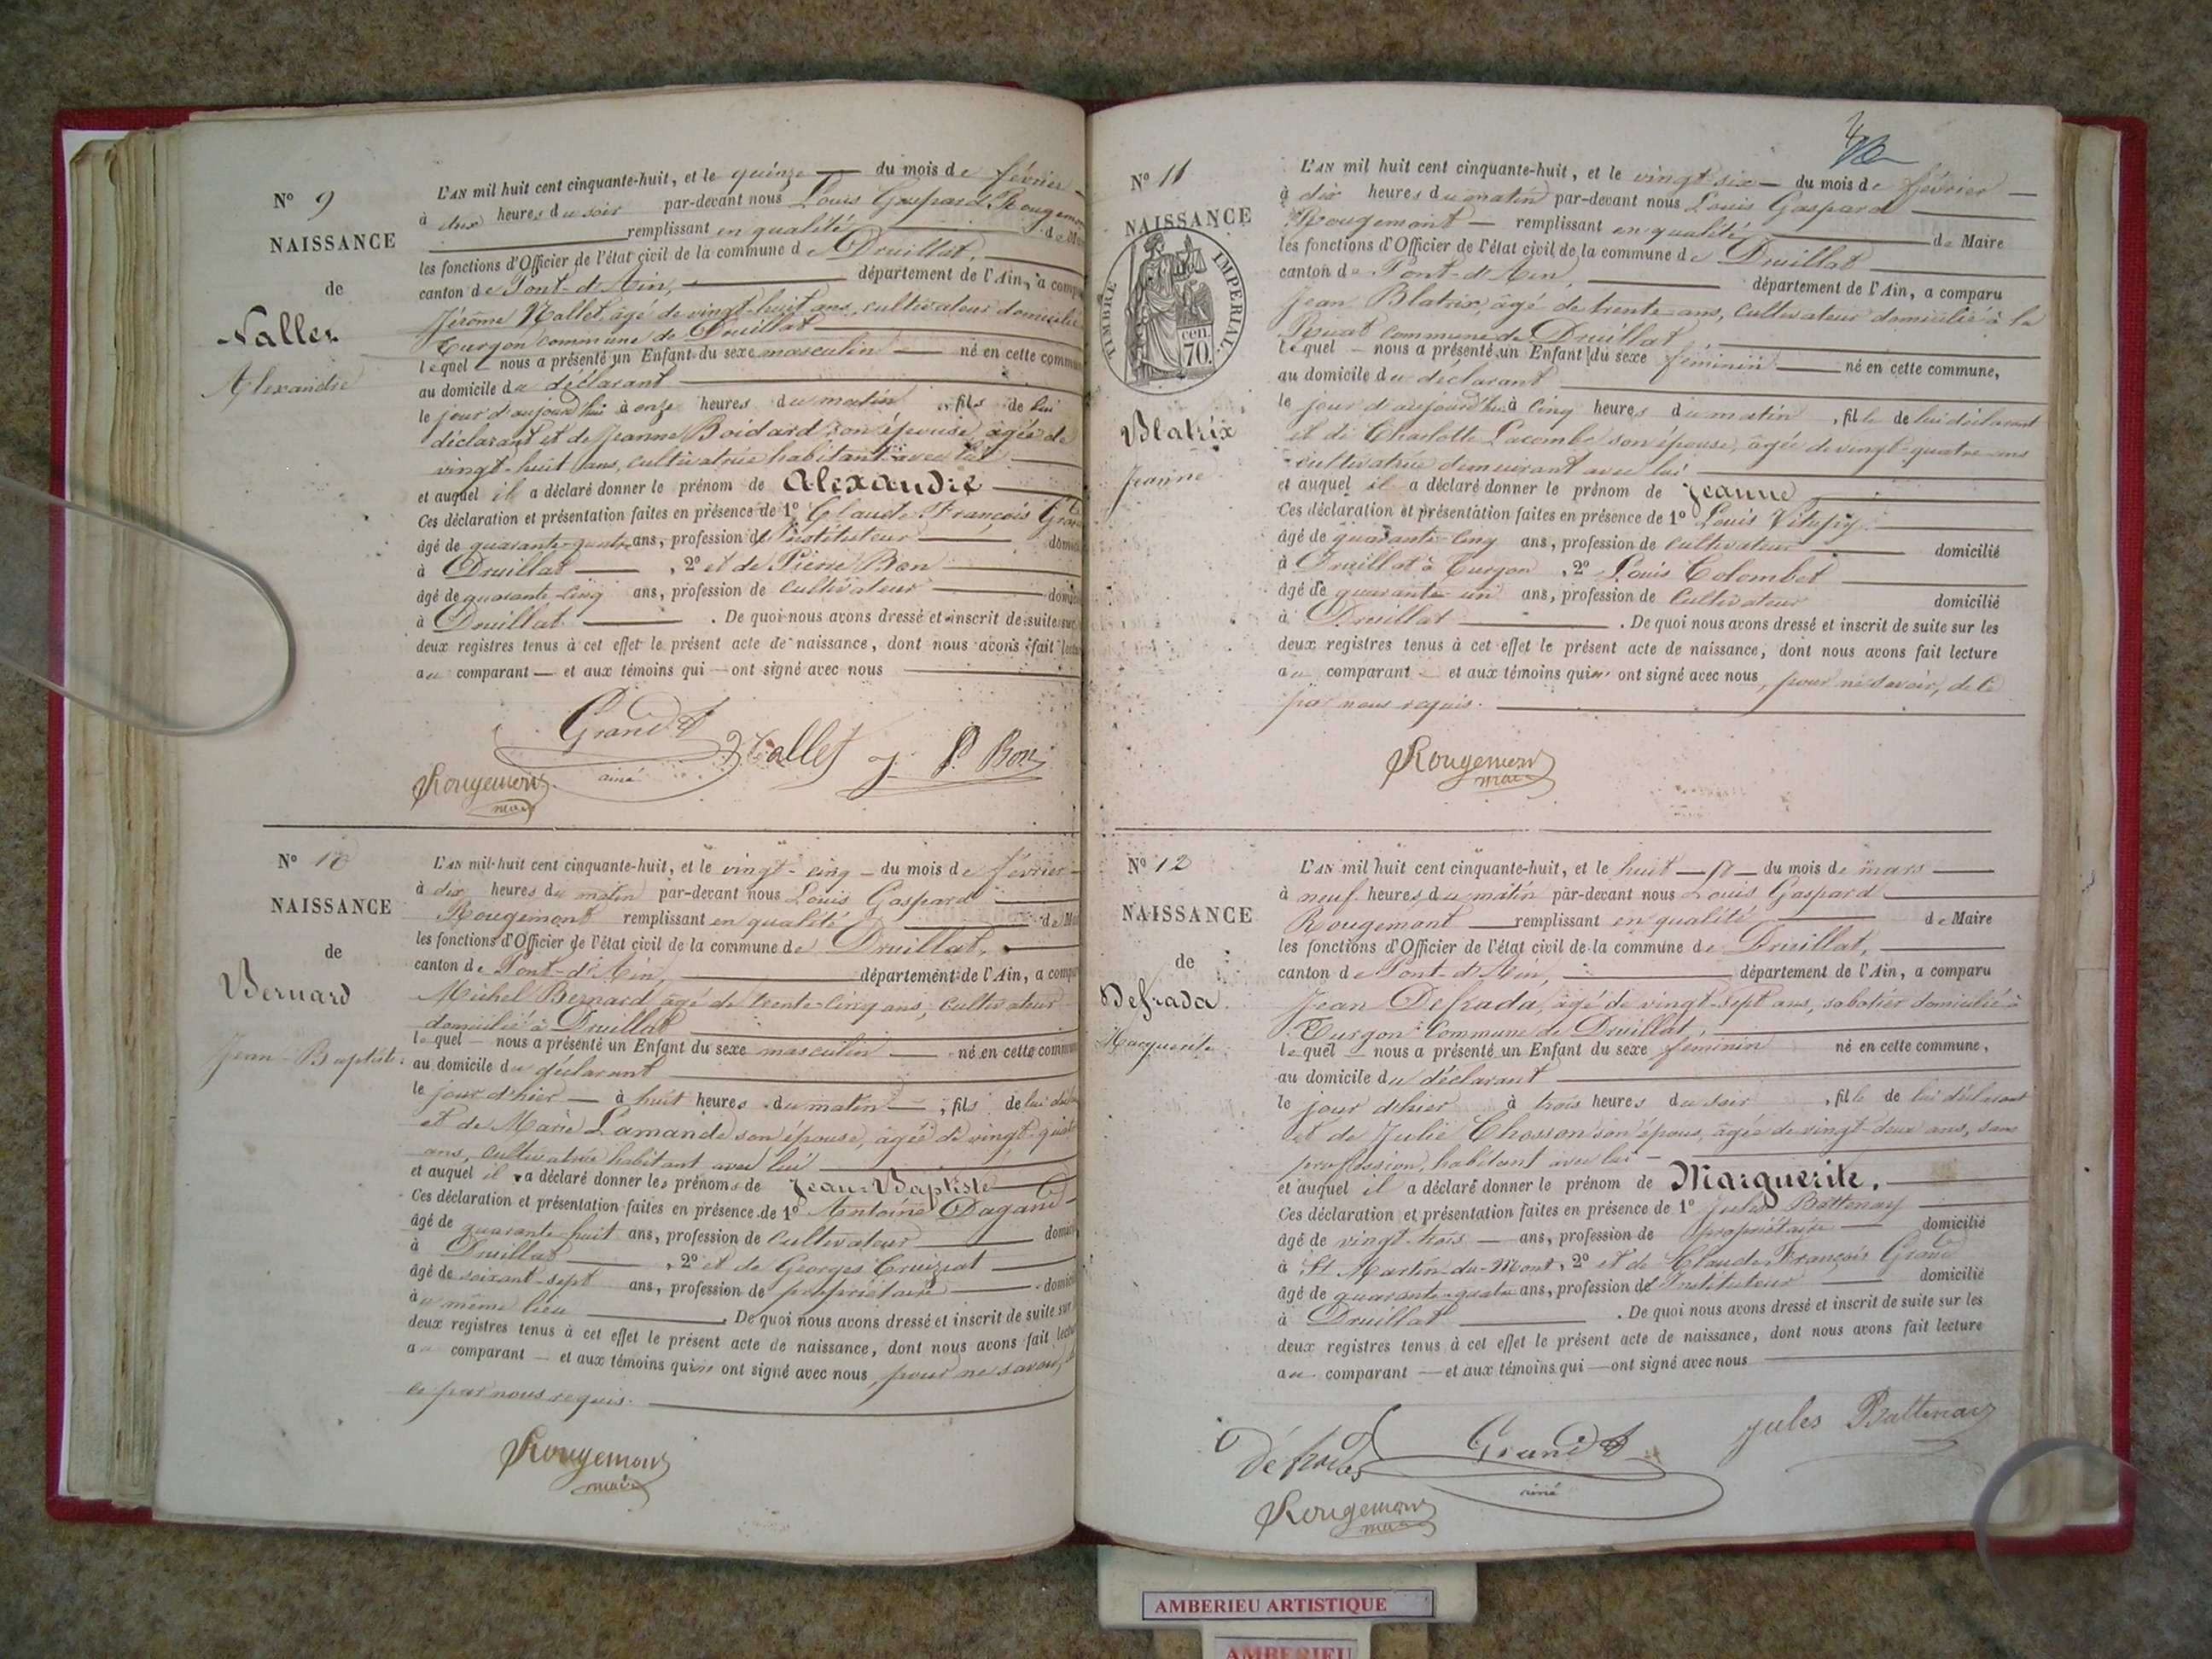 N° 9
NAISSANCE
de
Nallet
Alexandre
L'AN mil huit cent cinquante-huit, et le quinze du mois de février
à deux heures du soir par-devant nous Louis Gaspard Rougemont
remplissant en qualité de Maire
les fonctions d'Officier de l'état civil de la commune de Druillat,
canton de Pont-d'Ain, département de l'Ain, a comparu
Jérôme Nallet, âgé de vingt-huit ans, cultivateur domicilié
Turgon commune de Druillat
lequel nous a présenté un Enfant du sexe masculin né en cette commune
au domicile du déclarant
le jour d'aujourd'hui à onze heures du matin, fils de lui
déclarant et de Jeanne Boidard son épouse, âgée de
vingt-huit ans, cultivatrice habitant avec lui
et auquel il a déclaré donner le prénom de Alexandre
Ces déclaration et présentation faites en présence de 1° Claude François Grand
âgé de quarante-quatre ans, profession d'instituteur domicilié
à Druillat, 2° et de Pierre Bon
âgé de quarante-cinq ans, profession de cultivateur domicilié
à Druillat. De quoi nous avons dressé et inscrit de suite sur
deux registres tenus à cet effet le présent acte de naissance, dont nous avons fait lecture
au comparant et aux témoins qui ont signé avec nous
Grand
aîné
Nallet J. P. Bon
Rougemont
maire
N° 10
NAISSANCE
de
Bernard
Jean-Baptiste
L'AN mil huit cent cinquante-huit, et le vingt-cinq du mois de février
à dix heures du matin par-devant nous Louis Gaspard
Rougemont remplissant en qualité de Maire
les fonctions d'Officier de l'état civil de la commune de Druillat,
canton de Pont-d'Ain, département de l'Ain, a comparu
Michel Bernard âgé de trente-cinq ans, cultivateur
domicilié à Druillat
lequel nous a présenté un Enfant du sexe masculin né en cette commune
au domicile du déclarant
le jour d'hier à huit heures du matin, fils de lui
et de Marie Lamande son épouse, âgée de vingt-quatre
ans, cultivatrice habitant avec lui
et auquel il a déclaré donner les prénoms de Jean-Baptiste
Ces déclaration et présentation faites en présence de 1° Antoine Dagand
âgé de quarante-huit ans, profession de cultivateur domicilié
à Druillat, 2° et de Georges Cruiziat
âgé de soixant-sept ans, profession de propriétaire domicilié
au même lieu. De quoi nous avons dressé et inscrit de suite sur
deux registres tenus à cet effet le présent acte de naissance, dont nous avons fait lecture
au comparant et aux témoins qui n'ont signé avec nous, pour ne savoir, de
ce par nous requis.
Rougemont
maire
N° 11
NAISSANCE
TIMBRE IMPERIAL
70 cen
Blatrix
Jeanne
L'AN mil huit cent cinquante-huit, et le vingt-six du mois de février
à dix heures du matin par-devant nous Louis Gaspard
Rougemont remplissant en qualité de Maire
les fonctions d'Officier de l'état civil de la commune de Druillat
canton de Pont-d'Ain, département de l'Ain, a comparu
Jean Blatrix, âgé de trente ans, cultivateur domicilié à la
commune de Druillat,
lequel nous a présenté un Enfant du sexe féminin né en cette commune,
au domicile du déclarant
le jour d'aujourd'hui à cinq heures du matin, fille de lui déclarant
et de Charlotte Lacombe son épouse, âgée de vingt-quatre ans
cultivatrice demeurant avec lui
et auquel il a déclaré donner le prénom de Jeanne
Ces déclaration et présentation faites en présence de 1° Louis
âgé de quarante-cinq ans, profession de cultivateur domicilié
à Druillat à Turgon, 2° Louis Colombet
âgé de quarante-un ans, profession de cultivateur domicilié
à Druillat. De quoi nous avons dressé et inscrit de suite sur les
deux registres tenus à cet effet le présent acte de naissance, dont nous avons fait lecture
au comparant et aux témoins qui n'ont signé avec nous, pour ne savoir, de ce
par nous requis.
Rougemont
maire
N° 12
NAISSANCE
de
Defrada
Marguerite
L'AN mil huit cent cinquante-huit, et le huit du mois de mars
à neuf heures du matin par-devant nous Louis Gaspard
Rougemont remplissant en qualité de Maire
les fonctions d'Officier de l'état civil de la commune de Druillat,
canton de Pont-d'Ain, département de l'Ain, a comparu
Jean Defrada, âgé de vingt-sept ans, sabotier domicilié à
Turgon commune de Druillat,
lequel nous a présenté un Enfant du sexe féminin né en cette commune,
au domicile du déclarant
le jour d'hier à trois heures du soir, fille de lui déclarant
et de Julie Chosson son épouse, âgée de vingt-deux ans, sans
profession, habitant avec lui
et auquel il a déclaré donner le prénom de Marguerite.
Ces déclaration et présentation faites en présence de 1° Jules Battenay
âgé de vingt-trois ans, profession de propriétaire domicilié
à St Martin-du-Mont, 2° et de Claude François Grand
âgé de quarante-quatre ans, profession d'Instituteur domicilié
à Druillat. De quoi nous avons dressé et inscrit de suite sur les
deux registres tenus à cet effet le présent acte de naissance, dont nous avons fait lecture
au comparant et aux témoins qui ont signé avec nous
Grand
aîné
Jules Battenay
Rougemont
maire
AMBERIEU ARTISTIQUE
AMBERIEU